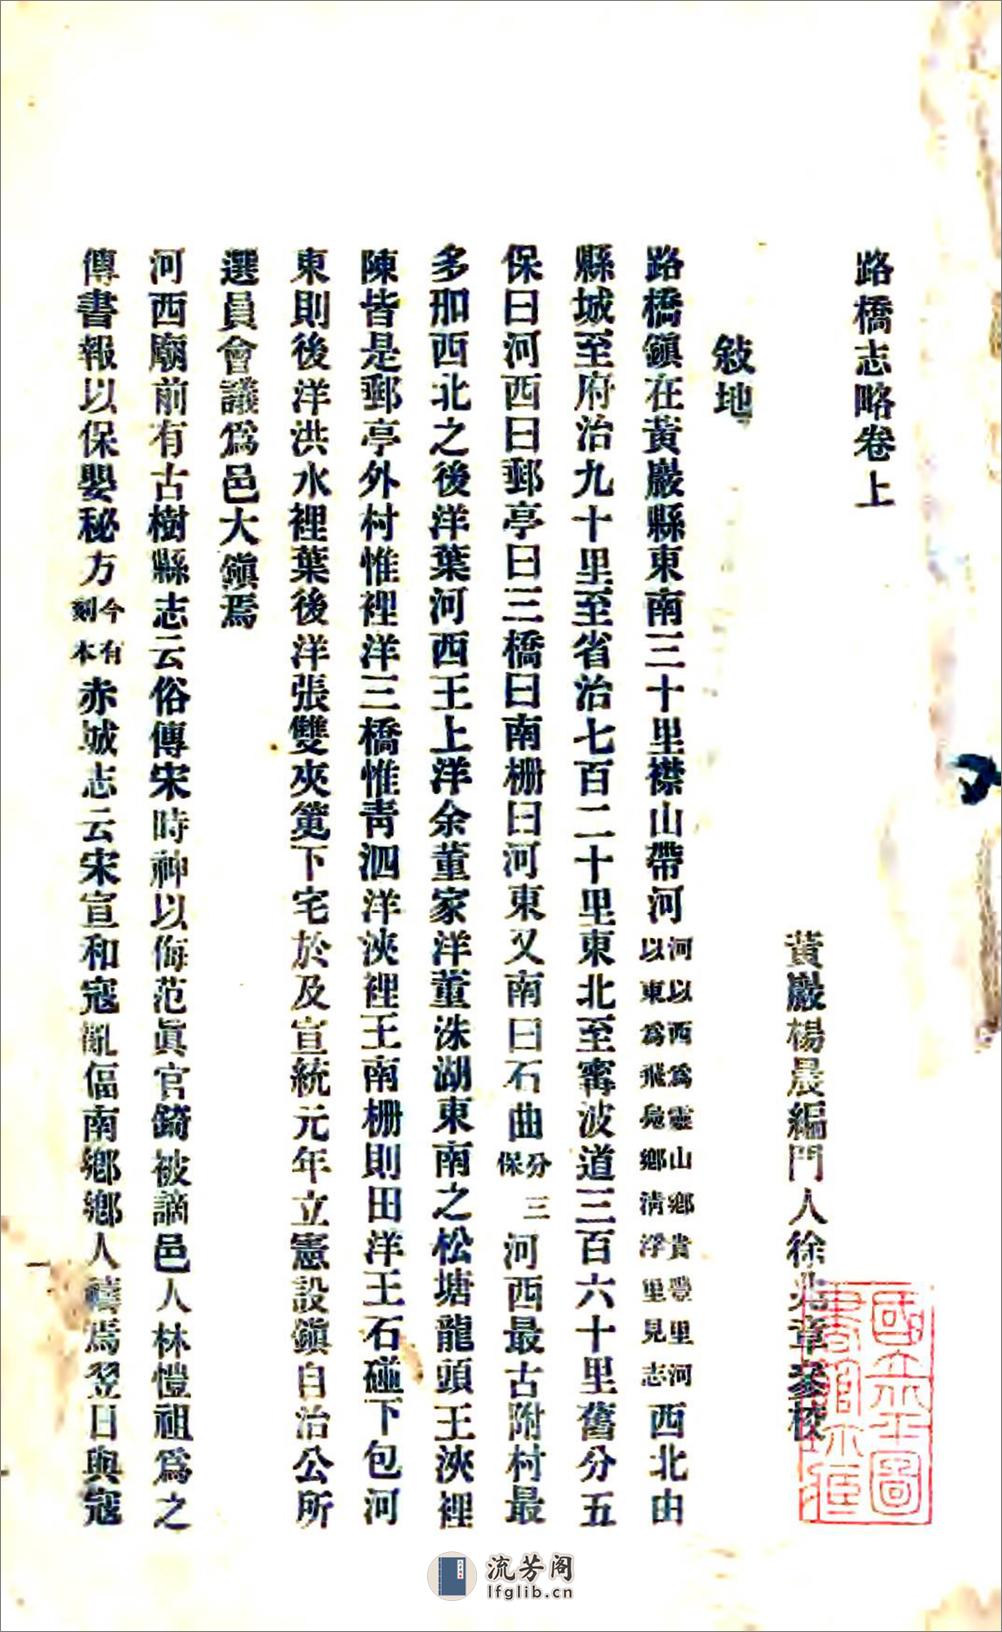 路橋志略卷上
黃巖楊晨編門人徐兆章參校
敍地
路橋鎮在黃巖縣東南三十里襟山帶河河以西爲靈山鄉貴豐里河以東爲飛鳧鄉清浮里見志西北由
縣城至府治九十里至省治七百二十里東北至甯波道三百六十里舊分五
保曰河西曰郵亭曰三橋曰南柵曰河東又南曰石曲分三保河西最古附村最
多邪西北之後洋葉河西王上洋余董家洋董洙湖東南之松塘龍頭王浹裡
陳皆是郵亭外村惟裡洋三橋惟青泗洋浹裡王南柵則田洋王石碰下包河
東則後洋洪水裡葉後洋張雙夾篦下宅於及宣統元年立憲設鎮自治公所
選員會議爲邑大鎮焉
河西廟前有古樹縣志云俗傳宋時神以侮范眞官錡被謫邑人林愷祖爲之
傳書報以保嬰秘方今有刻本赤城志云宋宣和寇亂偪南鄉鄉人禱焉翌日與寇
國立北平圖書館珍藏
流芳阁
lfglib.cn